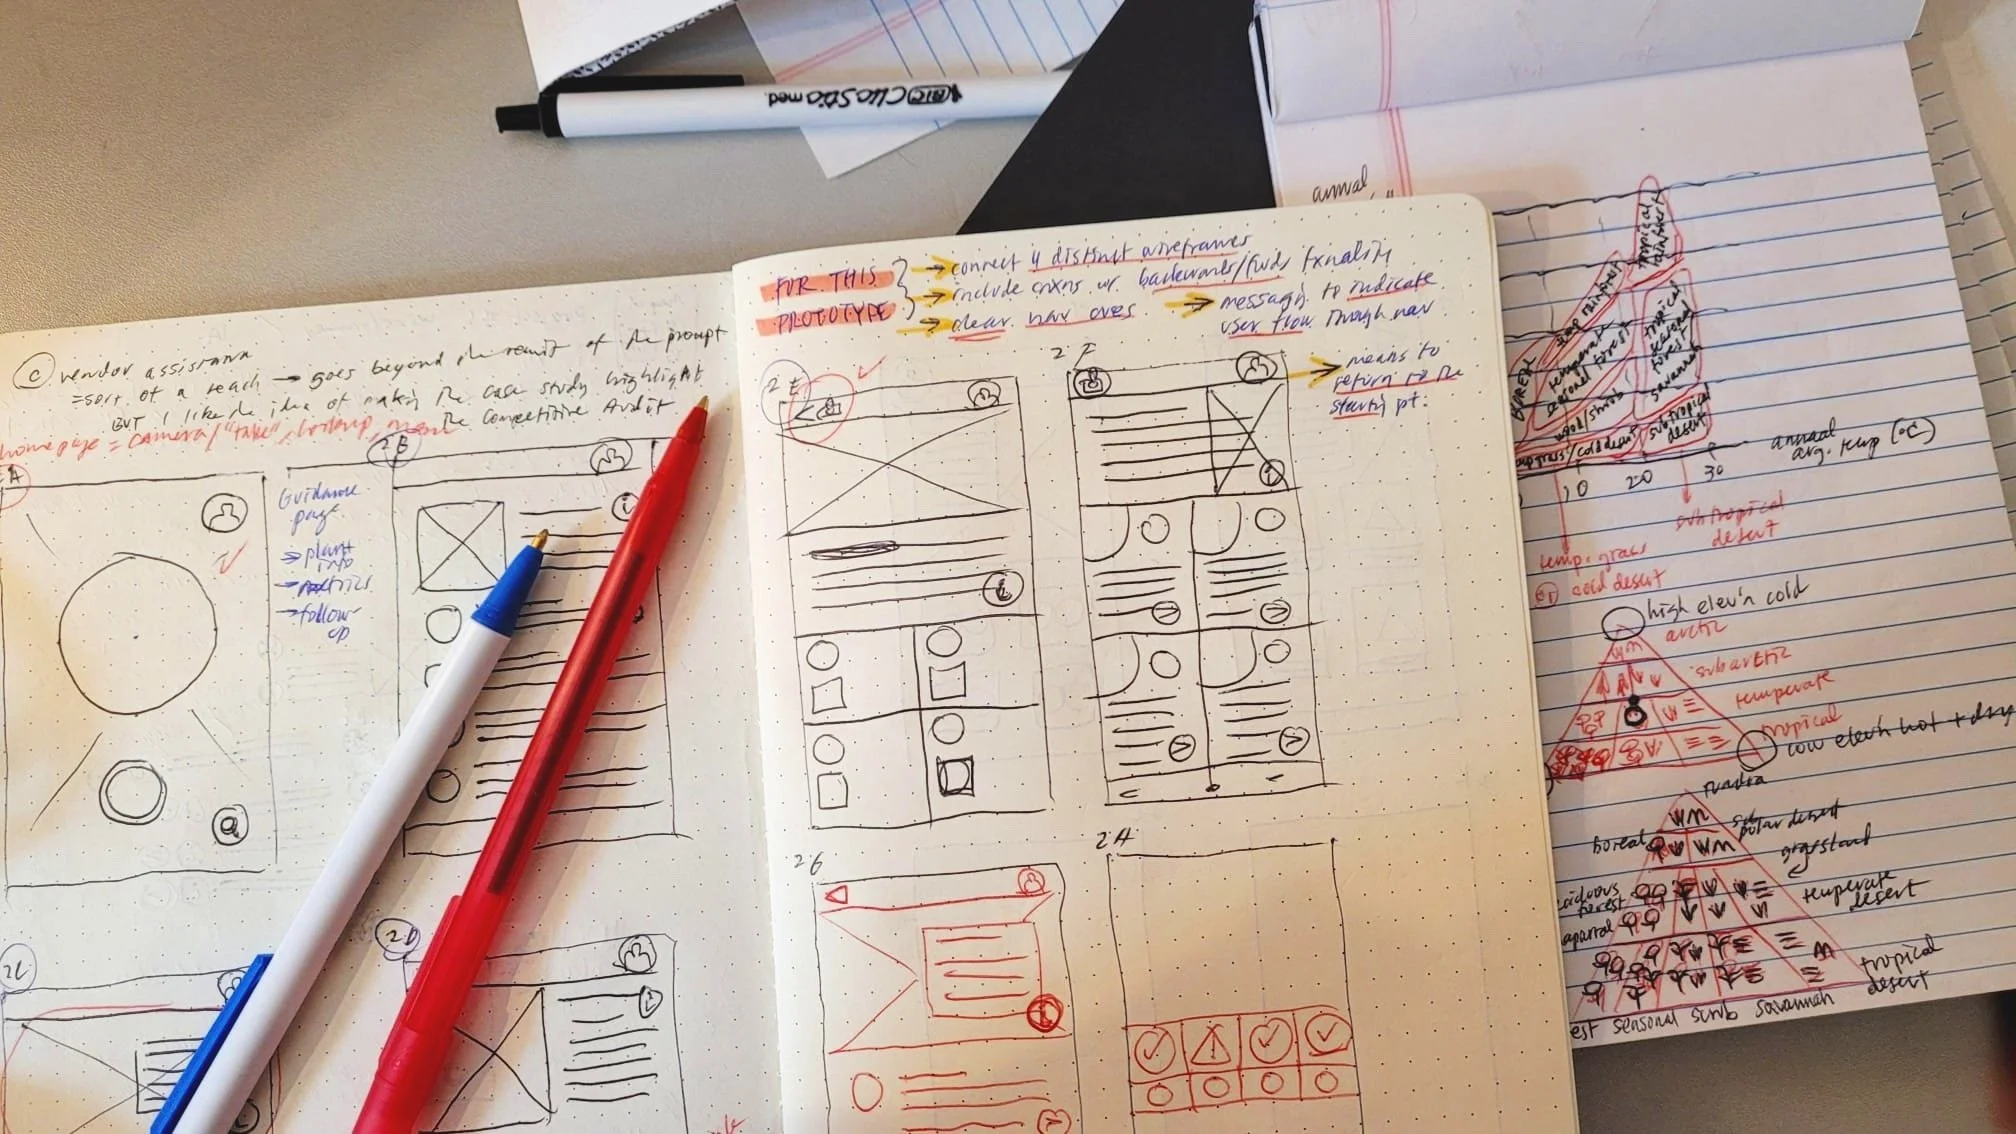 BIC Clic Stic med.
C vendor assistance
= sort of a reach → goes beyond the remit of the prompt
BUT I like the idea of making the case study highlight
the Competitive Audit
homepage = camera/"take", lookup, menu
A
2B
Guidance
page
→ plant
info
→ metrics
→ follow
up
2C
2D
FOR THIS
PROTOTYPE
→ connect 4 distinct wireframes
→ include cnxns w. backwards/fwds fxnality
→ clear nav cues
→ messaging to indicate
user flow through nav
→ means to
return to the
starting pt.
2E
2F
2G
2H
annual
tropical
rainforest
temp rainforest
temperate
seasonal forest
tropical
seasonal
forest
savannah
BOREAL
wood/shrub
temp grass/cold desert
subtropical
desert
10 20 30
annual
avg. temp (°C)
subtropical
desert
temp. grass
cold desert
high elev'n cold
arctic
subarctic
temperate
tropical
low elev'n hot + dry
tundra
polar desert
boreal
grassland
temperate
desert
forest
tropical
desert
est seasonal scrub savannah